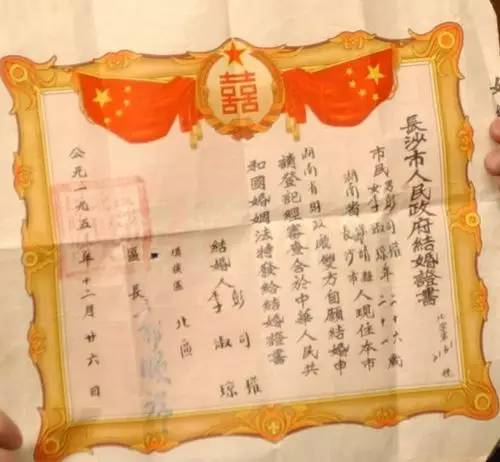 囍
長沙市人民政府結婚證書
北字第 號
市民男彭司權年二十六歲
女李淑琼年二十一
湖南省長沙市 人現住本市
湖南省財政廳雙方自願結婚申
請登記經審查合於中華人民共
和國婚姻法特發給結婚證書
結婚人彭司權
李淑琼
填發區 北區
區長
公元一九五 年十二月廿六日